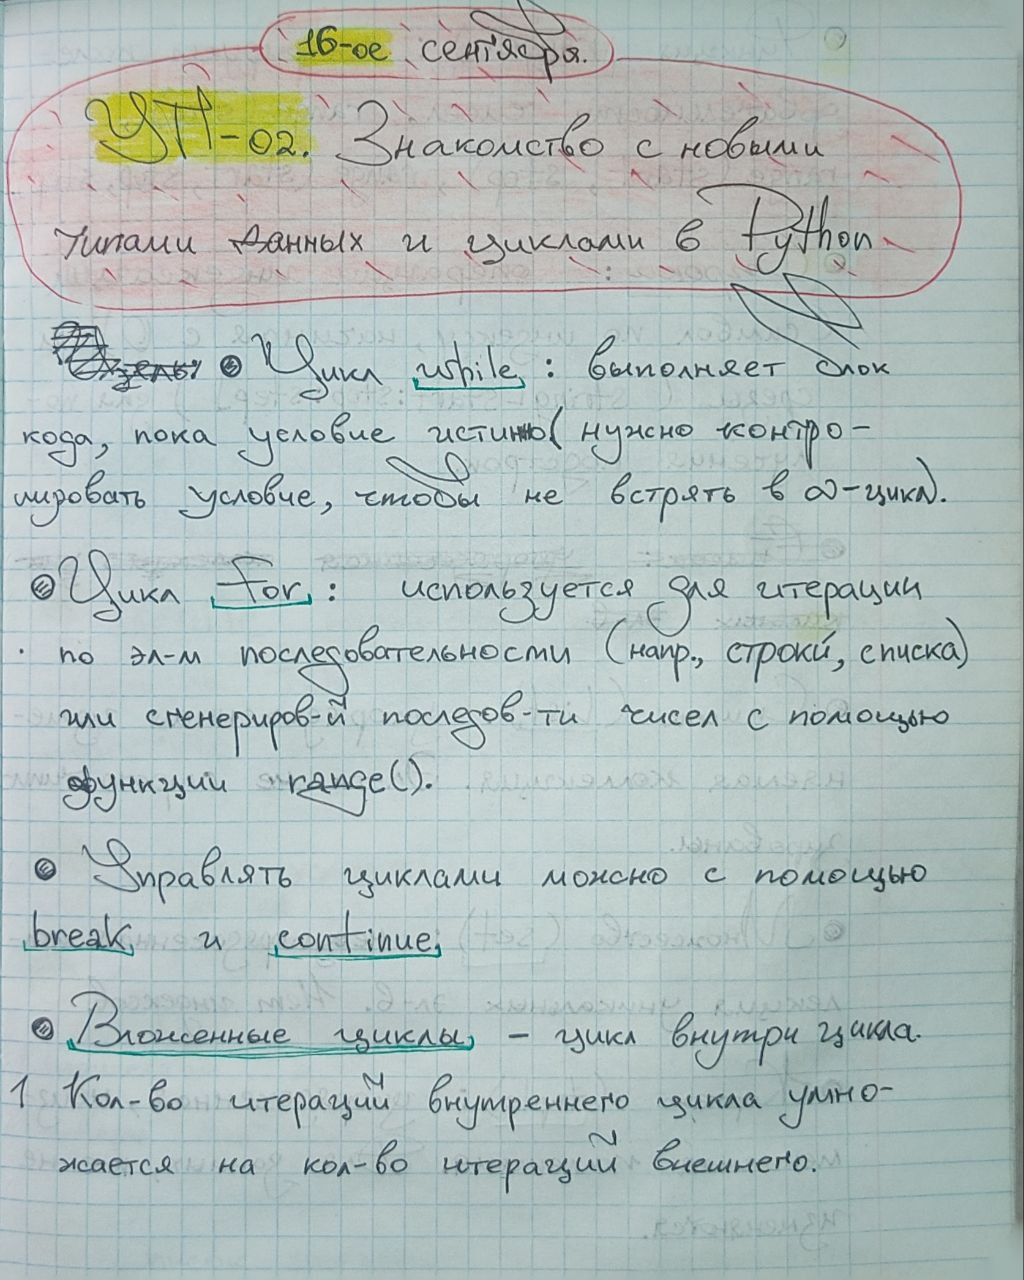 16-ое сентября.
УП-02. Знакомство с новыми
типами данных и циклами в Python
Цикл while: выполняет блок
кода, пока условие истино (нужно контро-
лировать условие, чтобы не встрять в ∞-цикл).
Цикл For: используется для итерации
по эл-м последовательности (напр., строки, списка)
или сгенериров-й последов-ти чисел с помощью
функции range().
Управлять циклами можно с помощью
break и continue
Вложенные циклы – цикл внутри цикла.
1 Кол-во итераций внутреннего цикла умно-
жается на кол-во итераций внешнего.